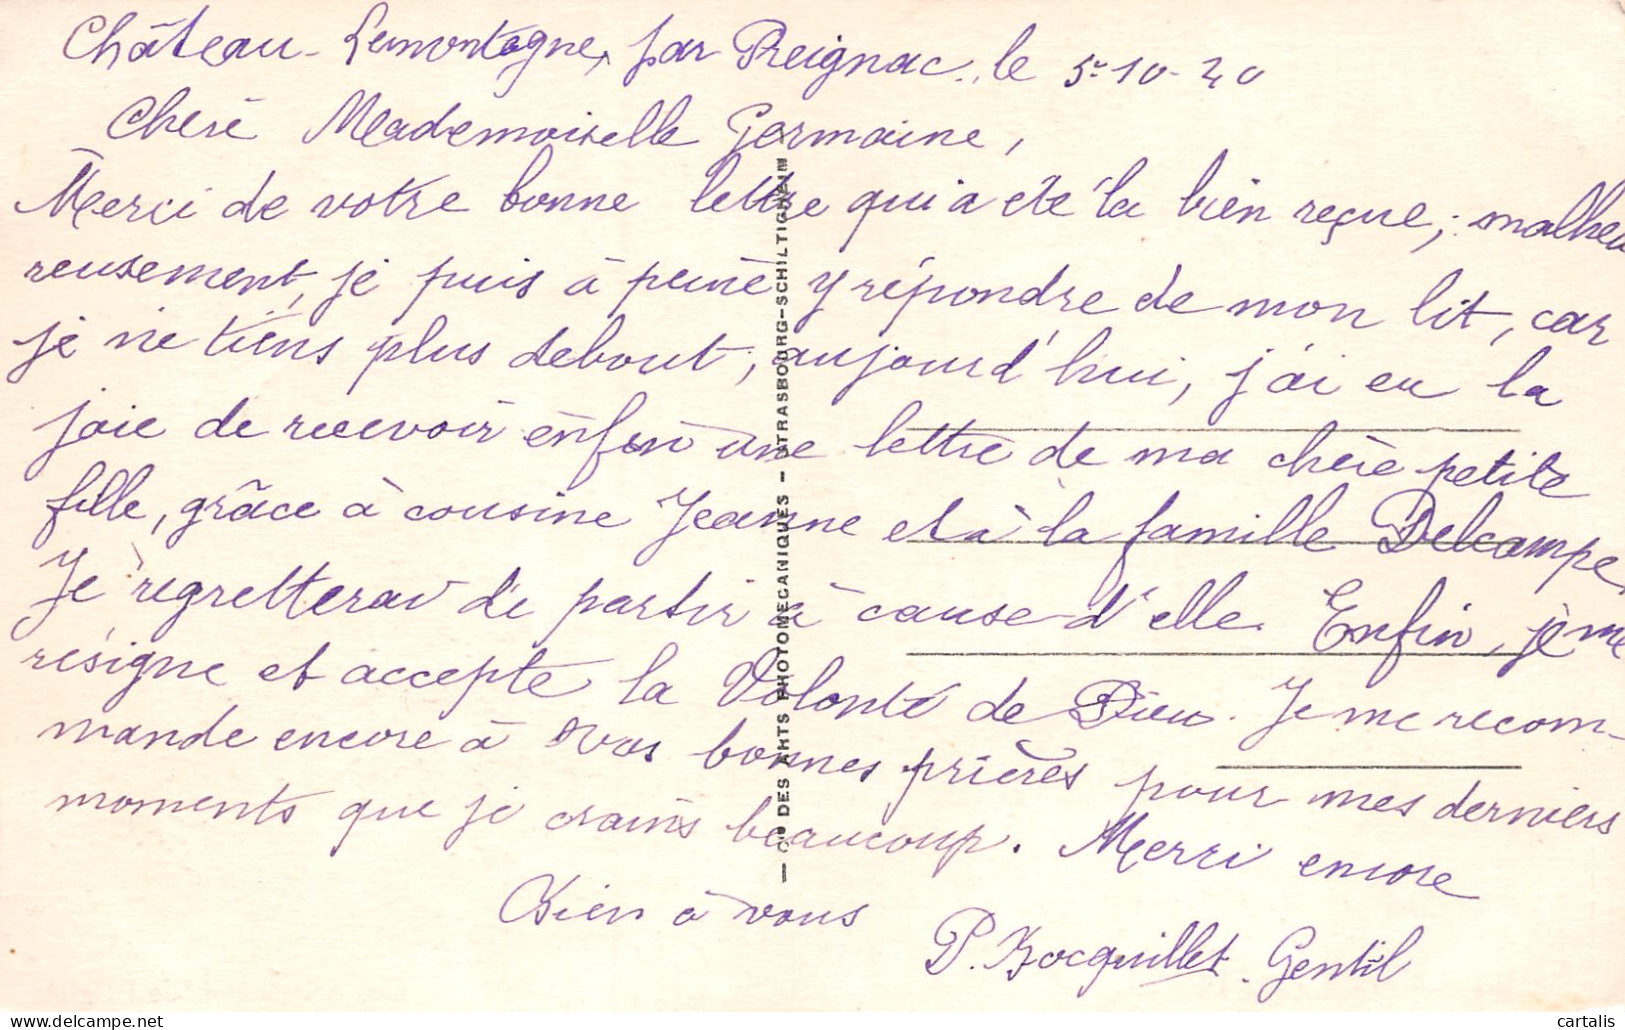 Château-Lamontagne, par Preignac, le 5-10-40
Chère Mademoiselle Germaine,
Merci de votre bonne lettre qui a été la bien reçue; malheu
reusement, je puis à peine y répondre de mon lit, car
je ne tiens plus debout, aujourd'hui, j'ai eu la
joie de recevoir enfin une lettre de ma chère petite
fille, grâce à cousine Jeanne et à la famille Delcampe,
Je regretterai de partir à cause d'elle. Enfin, je me
résigne et accepte la Volonté de Dieu. Je me recom-
mande encore à vos bonnes prières pour mes derniers
moments que je crains beaucoup. Merci encore
Bien à vous
P. Bocquillet. Gentil
— Cie DES ARTS PHOTOMECANIQUES — STRASBOURG-SCHILTIGHEIM —
delcampe.net
cartalis